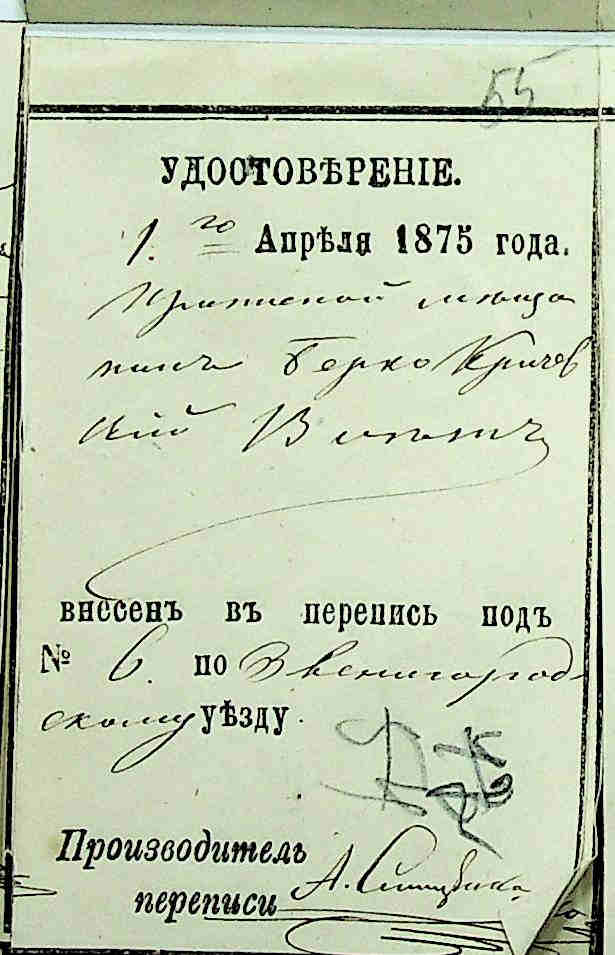 55
УДОСТОВѢРЕНІЕ.
1.го Апрѣля 1875 года.
мѣща
нинъ Берко Кричев
скій
внесенъ въ перепись подъ
№ 6. по Звенигород-
скому уѣзду.
Производитель
переписи А.